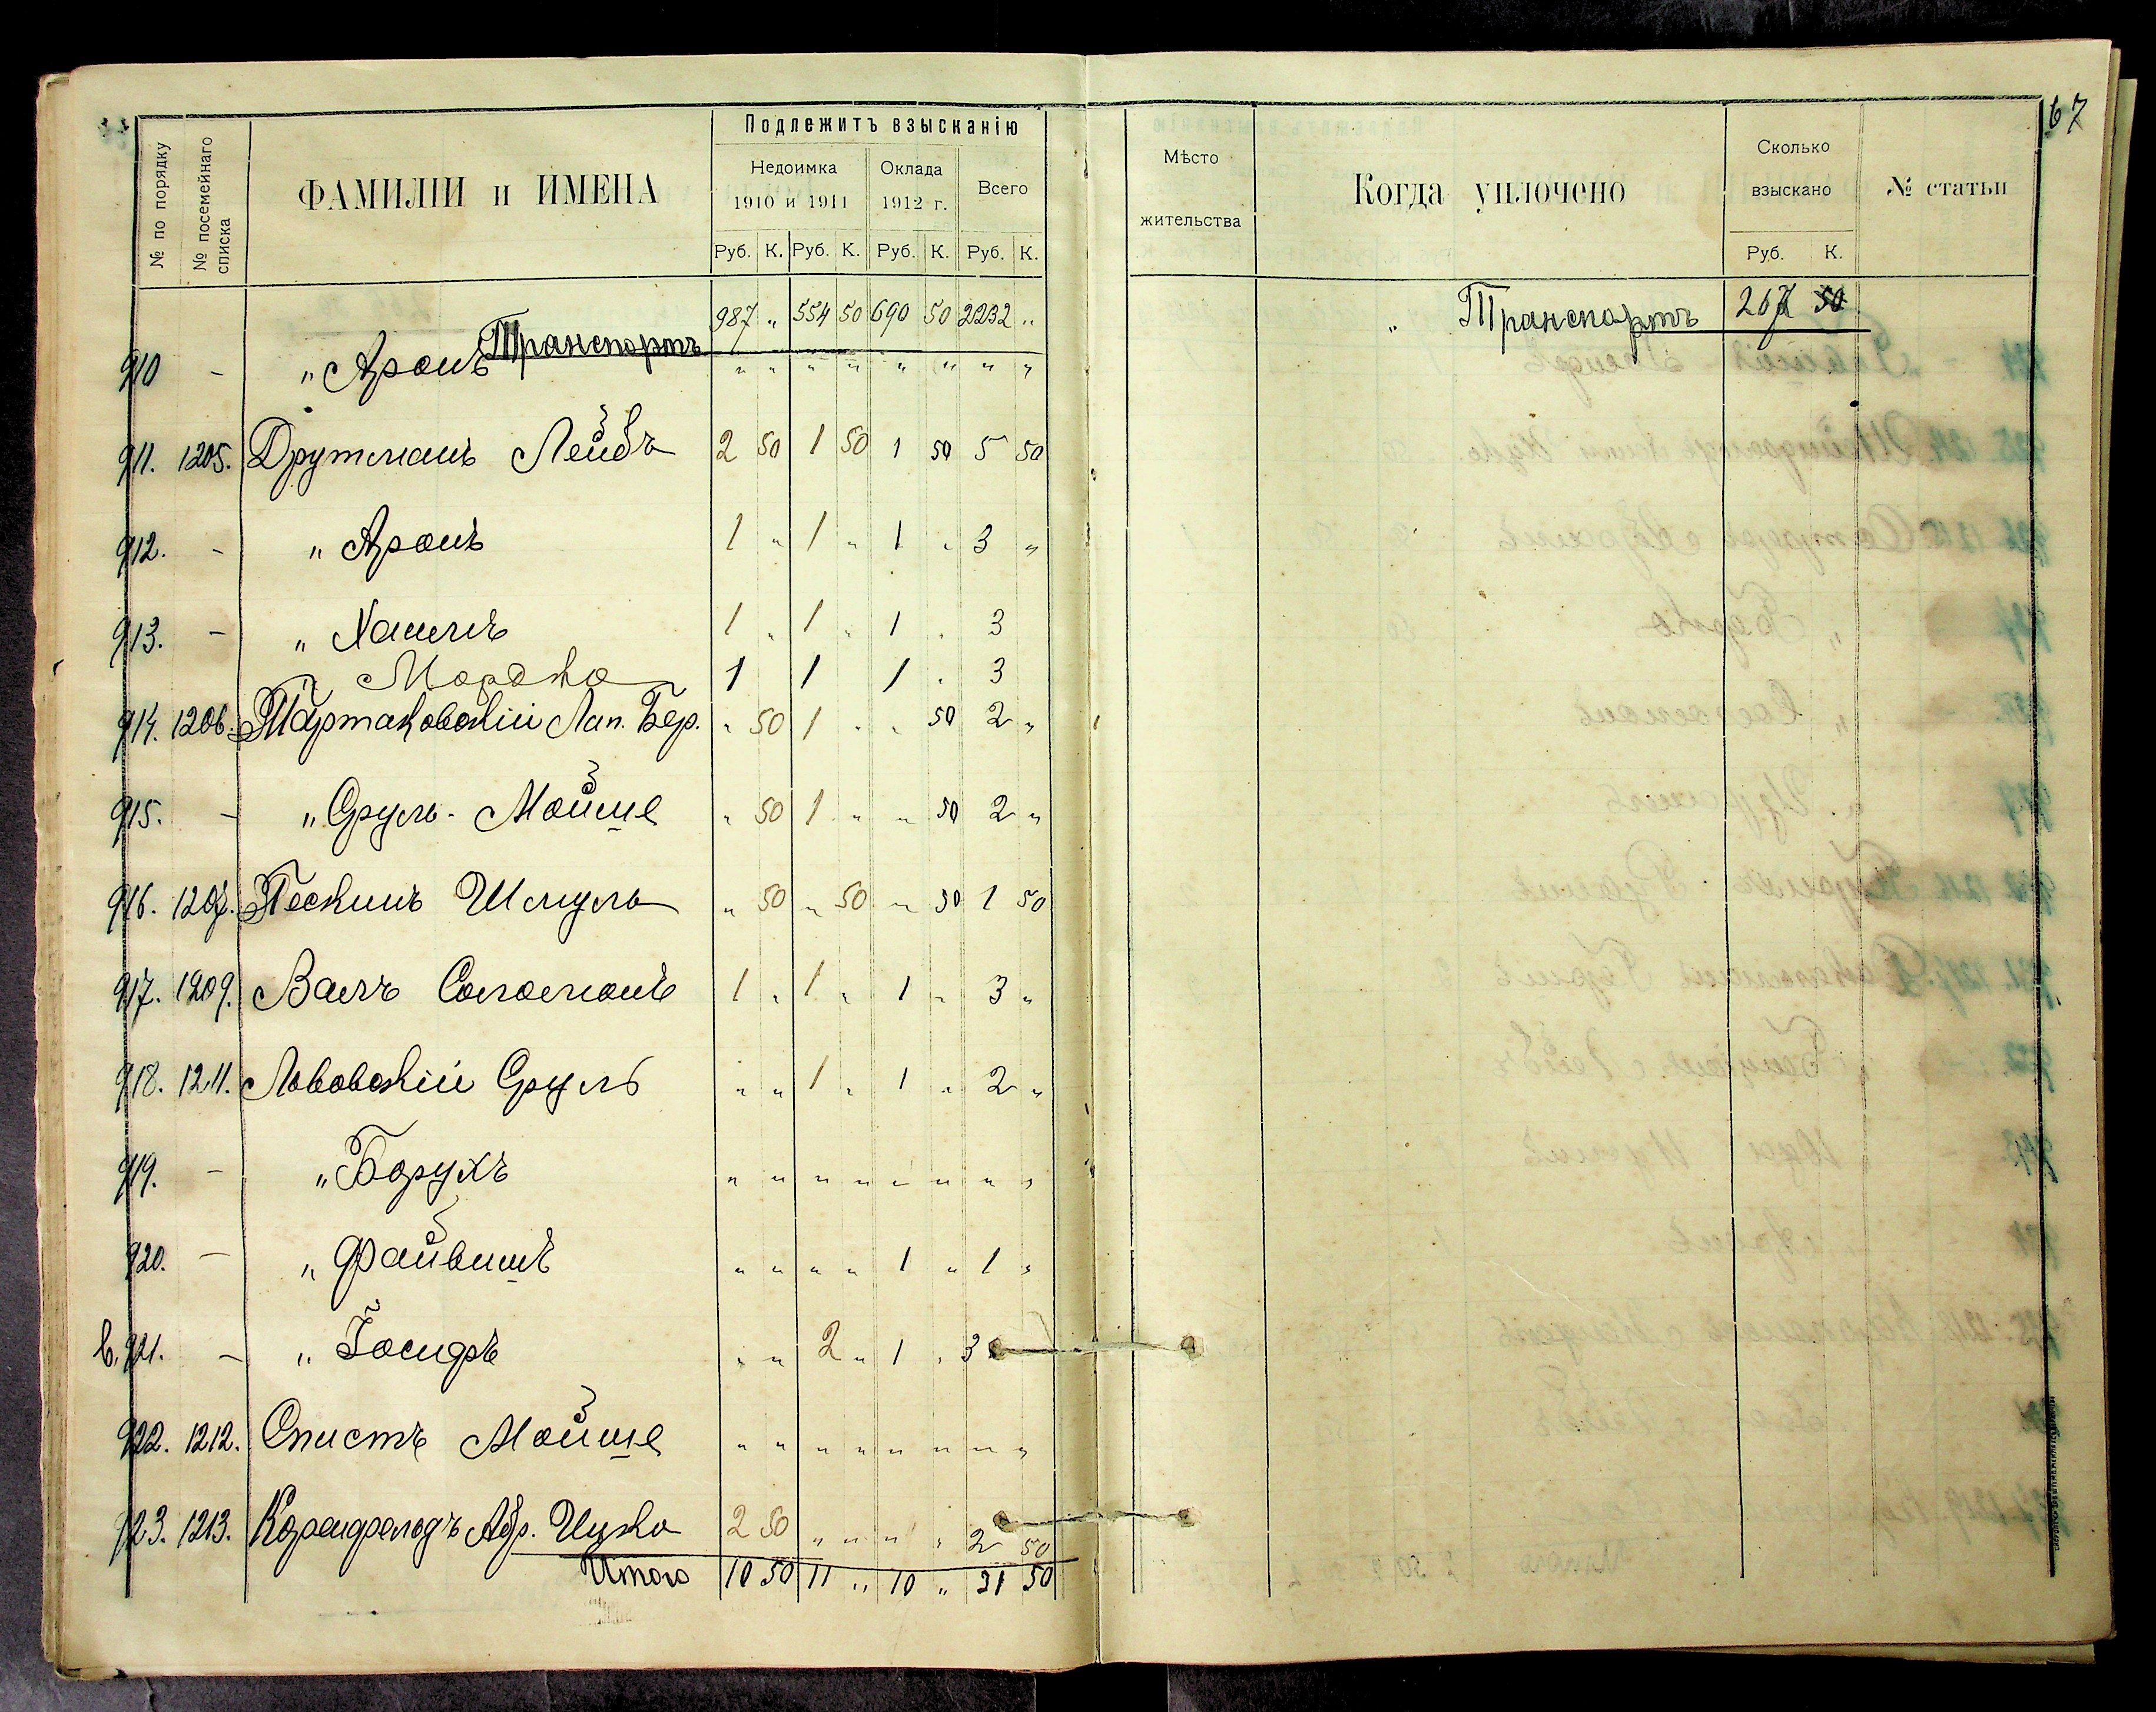 67
№ по порядку
№ посемейнаго списка
ФАМИЛІИ и ИМЕНА
Подлежитъ взысканію
Недоимка
1910 и 1911
Оклада
1912 г.
Всего
Руб. К. Руб. К. Руб. К. Руб. К.
Мѣсто
жительства
Когда уплочено
Сколько
взыскано
Руб. К.
№ статьи
Транспортъ 987 " 554 50 690 50 2232 "
" Транспортъ 267 50
910 - " Аронъ " " " " " " " "
911. 1205. Друтманъ Лейбъ 2 50 1 50 1 50 5 50
912. - " Аронъ 1 " 1 " 1 " 3 "
913. - " Хаимъ 1 " 1 " 1 " 3
" Мордко 1 1 1 " 3
914. 1206. Тартаковскій Лип. Бер. " 50 1 " " 50 2 "
915. - " Сруль-Мойше " 50 1 " " 50 2 "
916. 1207. Пескинъ Шмуль " 50 " 50 " 50 1 50
917. 1209. Валъ Соломонъ 1 " 1 " 1 " 3 "
918. 1211. Львовскій Сруль " " 1 " 1 " 2 "
919. - " Борухъ " " " " " " " "
920. - " Файвишъ " " " " 1 " 1 "
в. 921. - " Іосифъ " " 2 " 1 " 3
922. 1212. Спистъ Мойше " " " " " " " "
923. 1213. Коренфельдъ Абр. Ицко 2 50 " " " " 2 50
Итого 10 50 11 " 10 " 31 50